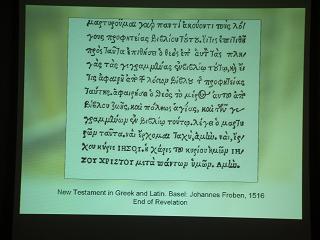 μαρτυροῦμαι γὰρ παντὶ ἀκούοντι τοὺς λό/
γους προφητείας βιβλίου τούτου, εἴ τις ἐπιτιθῇ
πρὸς ταῦτα ἐπιθήσει ὁ θεὸς ἐπ' τὰς πλη
γὰς τὰς γεγραμμένας ἐν βιβλίῳ τούτῳ, καὶ εἴ
τις ἀφαιρῇ ἀπὸ λόγων βίβλου προφητείας
ταύτης, ἀφαιρήσει ὁ θεὸς τὸ μέρος αὐτοῦ ἀπὸ
βίβλου ζωῆς, καὶ πόλεως ἁγίας, καὶ τῶν γε
γραμμένων ἐν βιβλίῳ τούτῳ. λέγει ὁ μαρτυ
ρῶν ταῦτα. ναὶ ἔρχομαι ταχύ, ἀμήν. ναὶ, ἔρ/
χου κύριε ΙΗΣΟΥ. ἡ χάρις τοῦ κυρίου ἡμῶν ΙΗ
ΣΟΥ ΧΡΙΣΤΟΥ μετὰ πάντων ὑμῶν. Αμήν.
New Testament in Greek and Latin. Basel: Johannes Froben, 1516
End of Revelation